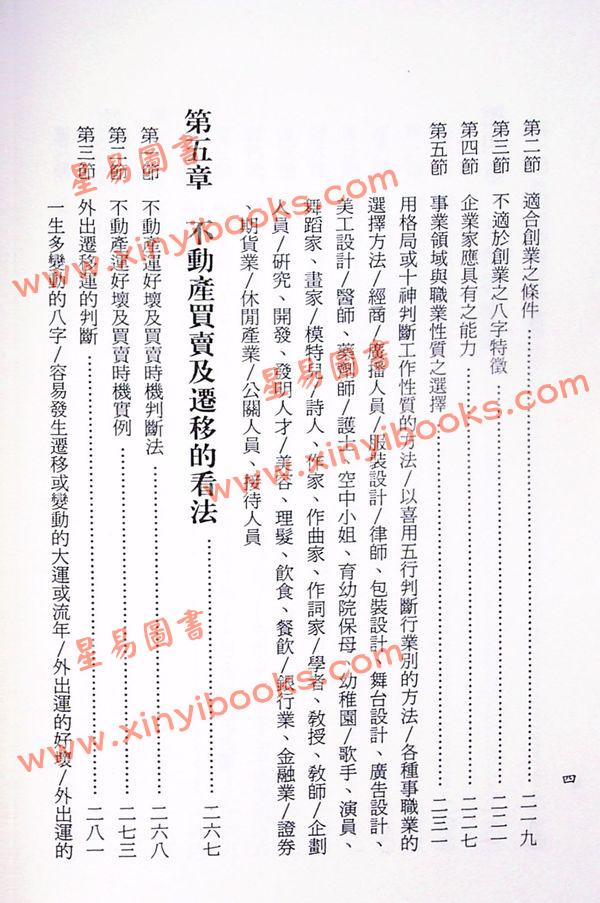 第二節　適合創業之條件………二一九
第三節　不適於創業之八字特徵………二二一
第四節　企業家應具有之能力………二二七
第五節　事業領域與職業性質之選擇………二三一
用格局或十神判斷工作性質的方法/以喜用五行判斷行業別的方法/各種事職業的
選擇方法/經商/廣播人員/服裝設計/律師、包裝設計、舞台設計、廣告設計、
美工設計/醫師、藥劑師/護士、空中小姐、育幼院保母、幼稚園/歌手、演員、
舞蹈家、畫家/模特兒/詩人、作家、作曲家、作詞家/學者、教授、教師/企劃
人員/研究、開發、發明人才/美容、理髮、飲食、餐飲/銀行業、金融業/證券
、期貨業/休閒產業/公關人員、接待人員
第五章　不動產買賣及遷移的看法………二六七
第一節　不動產運好壞及買賣時機判斷法………二六八
第二節　不動產運好壞及買賣時機實例………二七三
第三節　外出遷移運的判斷………二八一
一生多變動的八字/容易發生遷移或變動的大運或流年/外出運的好壞/外出運的
四
星易圖書
www.xinyibooks.com
星易圖書
www.xinyibooks.com
星易圖書
www.xinyibooks.com